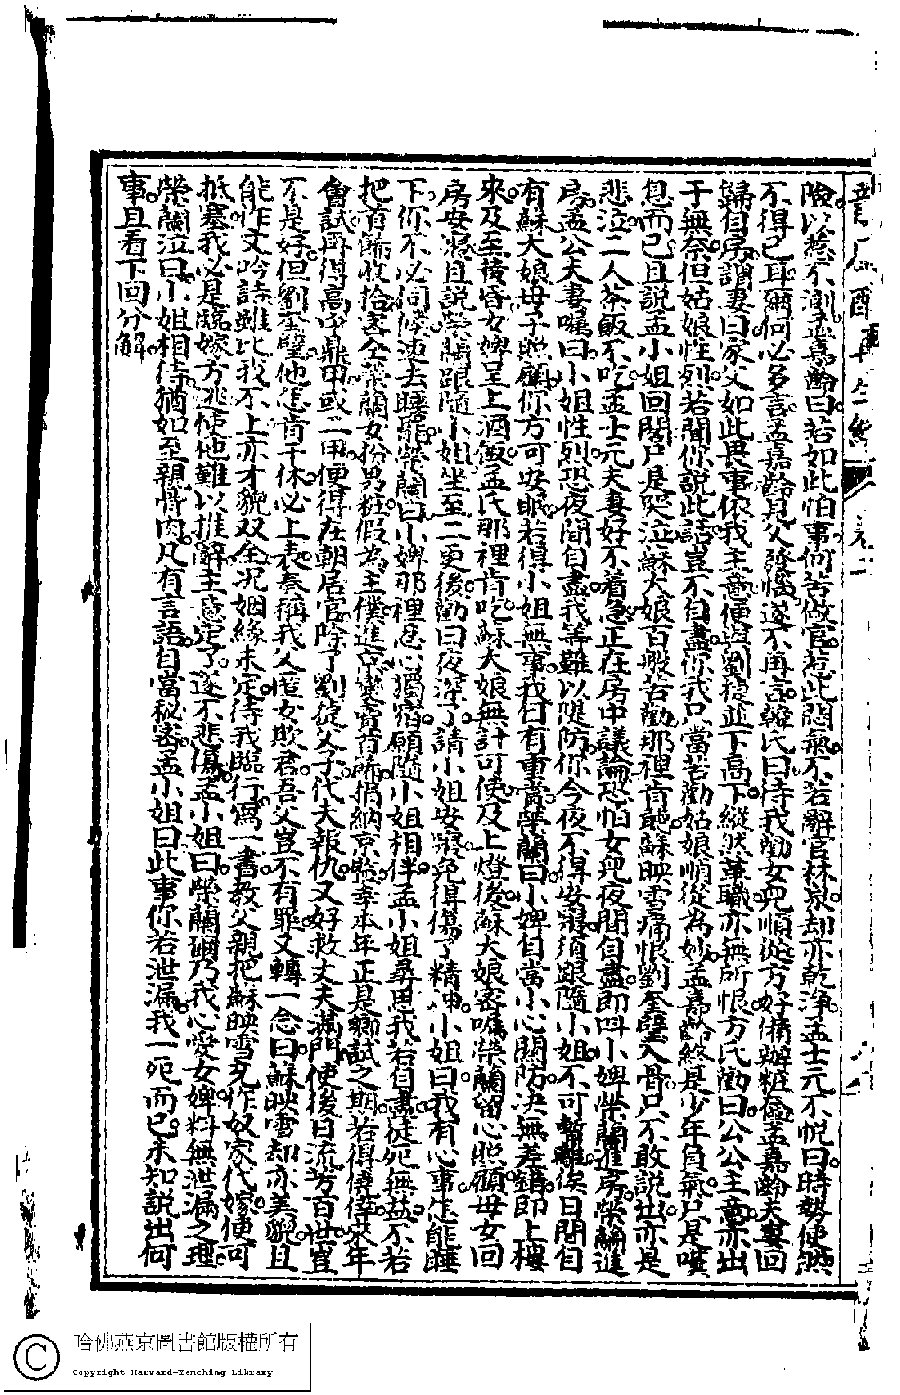 險以惹不測孟嘉齡曰若如此怕事何苦做官惹此悶氣不若辭官林泉却亦乾淨孟士元不悅曰時勢使然
不得已耳爾何必多言孟嘉齡見父發惱遂不再言韓氏曰待我勸女兒順從方好備辦粧奩孟嘉齡夫妻回
歸自房謂妻曰家父如此畏事依我主意便與劉捷並下高下縱然革職亦無所恨方氏勸曰公公主意亦出
于無奈但姑娘性烈若聞你說此話豈不自盡你我只當苦勸姑娘順從為妙孟嘉齡終是少年負氣只是嘆
息而已且說孟小姐回閣只是哭泣蘇大娘百般苦勸那裡肯聽蘇映雪痛恨劉奎璧入骨只不敢說出亦是
悲泣二人茶飯不吃孟士元夫妻好不着急正在房中議論恐怕女兒夜間自盡即叫小婢榮蘭進房榮蘭進
房孟公夫妻囑曰小姐性烈恐夜間自盡我等難以隄防你今夜不得安寢須跟隨小姐不可暫離俟日間自
有蘇大娘母子照顧你方可安眠若得小姐無事我自有重賞榮蘭曰小婢自當小心關防决無差錯即上樓
來及至黄昏女婢呈上酒飯孟氏那裡肯吃蘇大娘無計可使及上燈後蘇大娘密囑榮蘭留心照顧母女回
房安寢且說榮蘭跟隨小姐坐至二更後勸曰夜深了請小姐安寢免得傷了精神小姐曰我有心事怎能睡
下你不必伺候速去睡罷榮蘭曰小婢那裡忍心獨宿願隨小姐相伴孟小姐尋思我若自盡徒死無益不若
把首飾收拾密令榮蘭女扮男粧假為主僕進京變賣首飾捐納京監季本年正是鄉試之期若得僥倖來年
會試再得高中鼎甲或二甲便得在朝居官除了劉徒父子代夫報仇又好救丈夫滿門使後日流芳百世豈
不是好但劉奎璧他怎肯干休必上表奏稱我父匿女欺君吾父豈不有罪又轉一念曰蘇映雪却亦美貌且
能作文吟詩雖比我不上亦才貌双全况姻緣未定待我臨行寫一書教父親把蘇映雪充作奴家代嫁便可
抵塞我必是臨嫁方逃使他難以推辭主意定了遂不悲傷孟小姐曰榮蘭爾乃我心愛女婢料無泄漏之理
榮蘭泣曰小姐相待猶如至親骨肉凡有言語自當秘密孟小姐曰此事你若泄漏我一死而已未知說出何
事且看下回分解
哈佛燕京圖書館版權所有
Copyright Harvard-Yenching Library